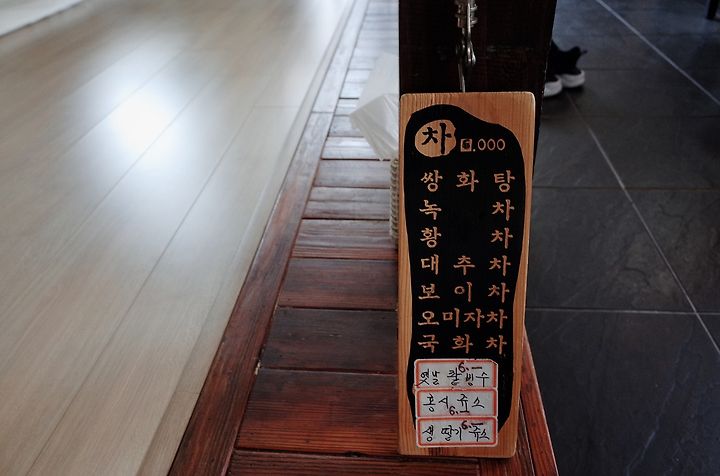 차 6.000
쌍화탕
녹차
황차
대추차
보이차
오미자차
국화차
옛날 팥빙수 6.—
홍시 쥬스 6.—
생 딸기 쥬스 6.—